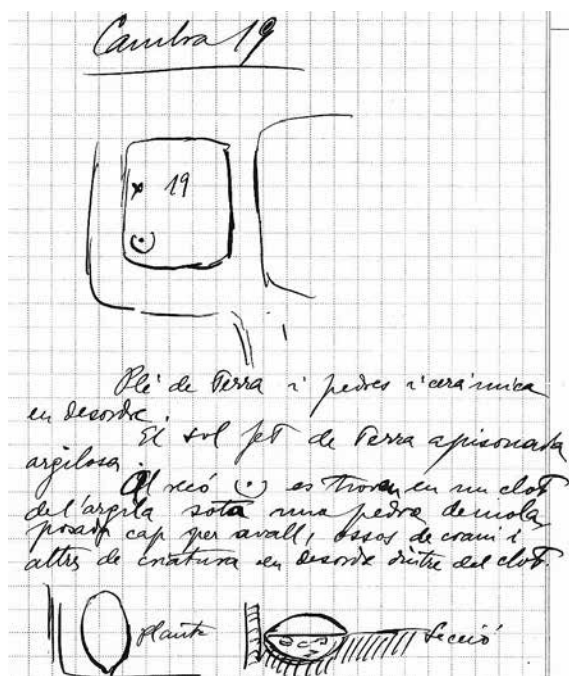 Cambra 19
19
Plé de Terra i pedres i ceràmica
en desordre.
El sol fet de Terra apisonada
argilosa.
Al recó (·) es troven en un clot
de l'argila sota una pedra de mola
posada cap per avall, ossos de crani i
altres de criatura en desordre dintre del clot.
Planta
Secció